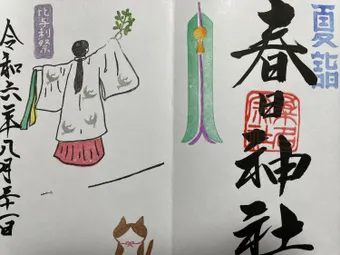 夏詣
春日神社
比与利祭
令和六年八月三十一日